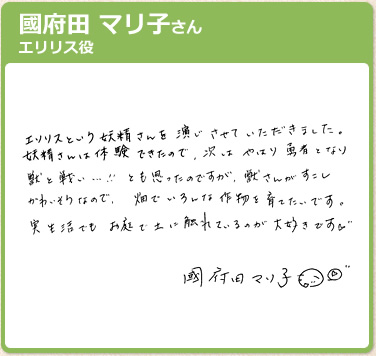 國府田 マリ子さん
エリリス役
エリリスという妖精さんを演じさせていただきました。
妖精さんは体験できたので、次はやはり勇者となり
獣と戦い…!! とも思ったのですが、獣さんがすこし
かわいそうなので、畑でいろんな作物を育てたいです。
実生活でもお庭で土に触れているのが大好きです
國府田マリ子